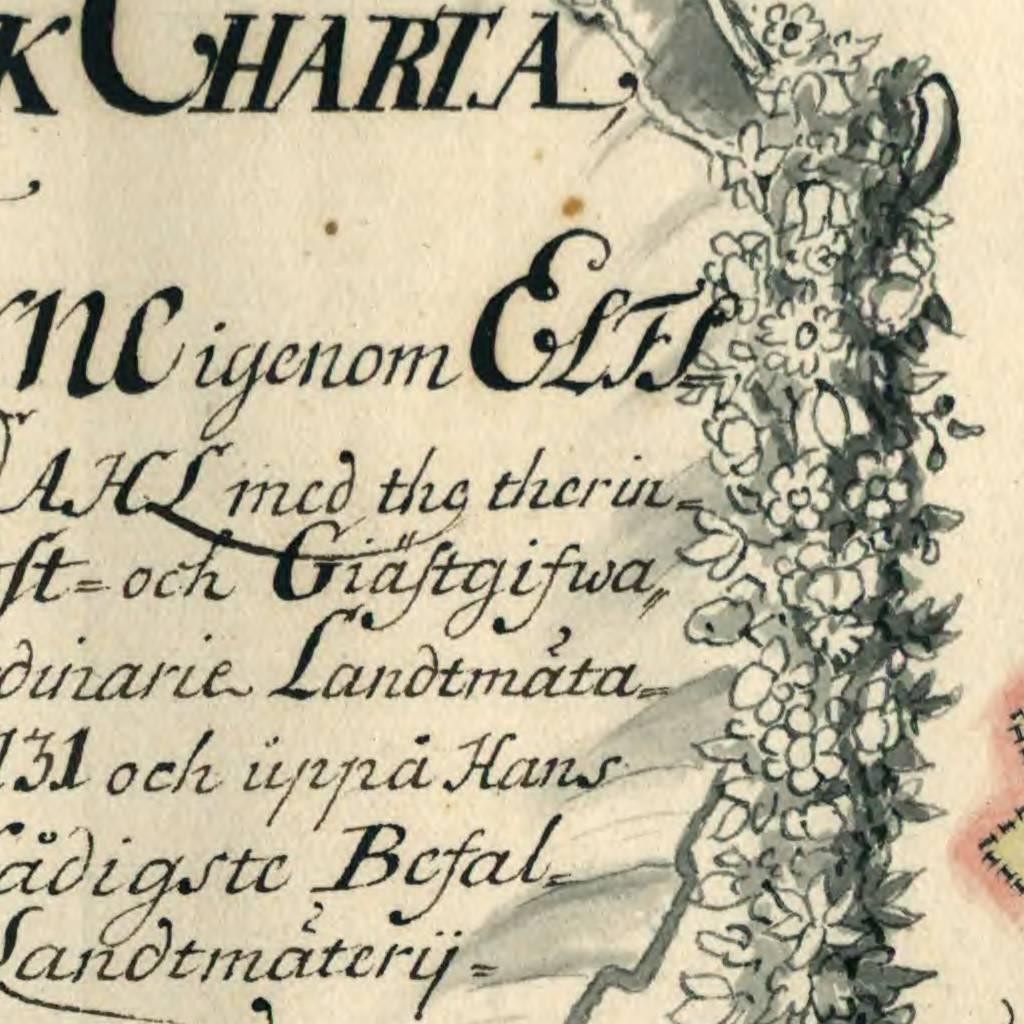 K CHARTA,
igenom ELFS
DAHL med the therin=
st= och Giästgifwa„
dinarie Landtmäta=
131 och üppå Hans
ådigste Befal=
Landtmäterij=